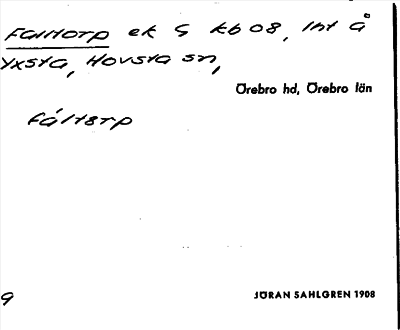 Falltorp ek S kb 08, Int å
Yxsta, Hovsta sn,
Örebro hd, Örebro län
fáltørp
9
JÖRAN SAHLGREN 1908